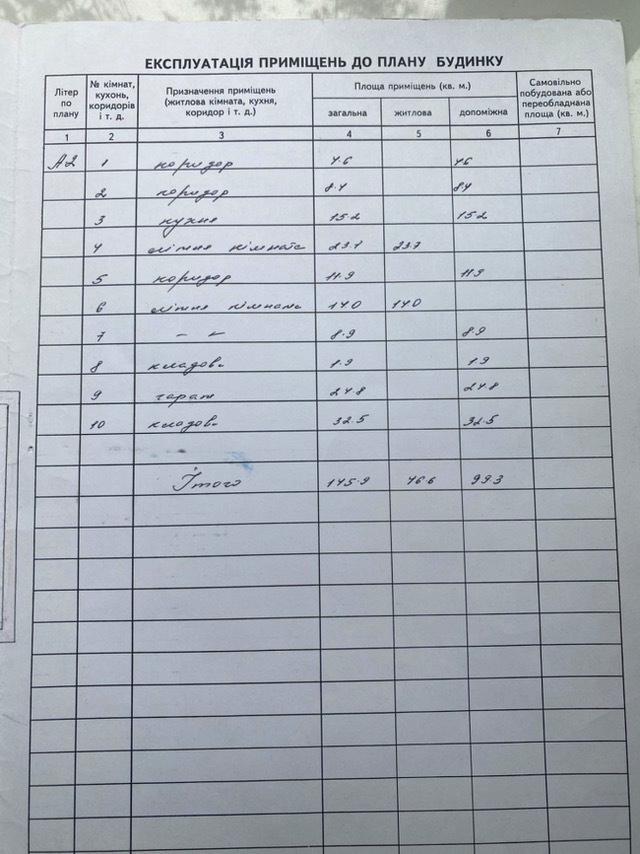 ЕКСПЛУАТАЦІЯ ПРИМІЩЕНЬ ДО ПЛАНУ БУДИНКУ
Літер по плану
№ кімнат, кухонь, коридорів і т. д.
Призначення приміщень (житлова кімната, кухня, коридор і т. д.)
Площа приміщень (кв. м.)
загальна житлова допоміжна
Самовільно побудована або переобладнана площа (кв. м.)
1 2 3 4 5 6 7
А2 1 коридор 4.6 4.6
2 коридор 8.4 8.4
3 кухня 15.2 15.2
4 житня кімната 23.7 23.7
5 коридор 11.9 11.9
6 житня кімната 14.0 14.0
7 — „ — 8.9 8.9
8 кладова 1.9 1.9
9 гараж 24.8 24.8
10 кладова 32.5 32.5
Ітого 145.9 46.6 99.3